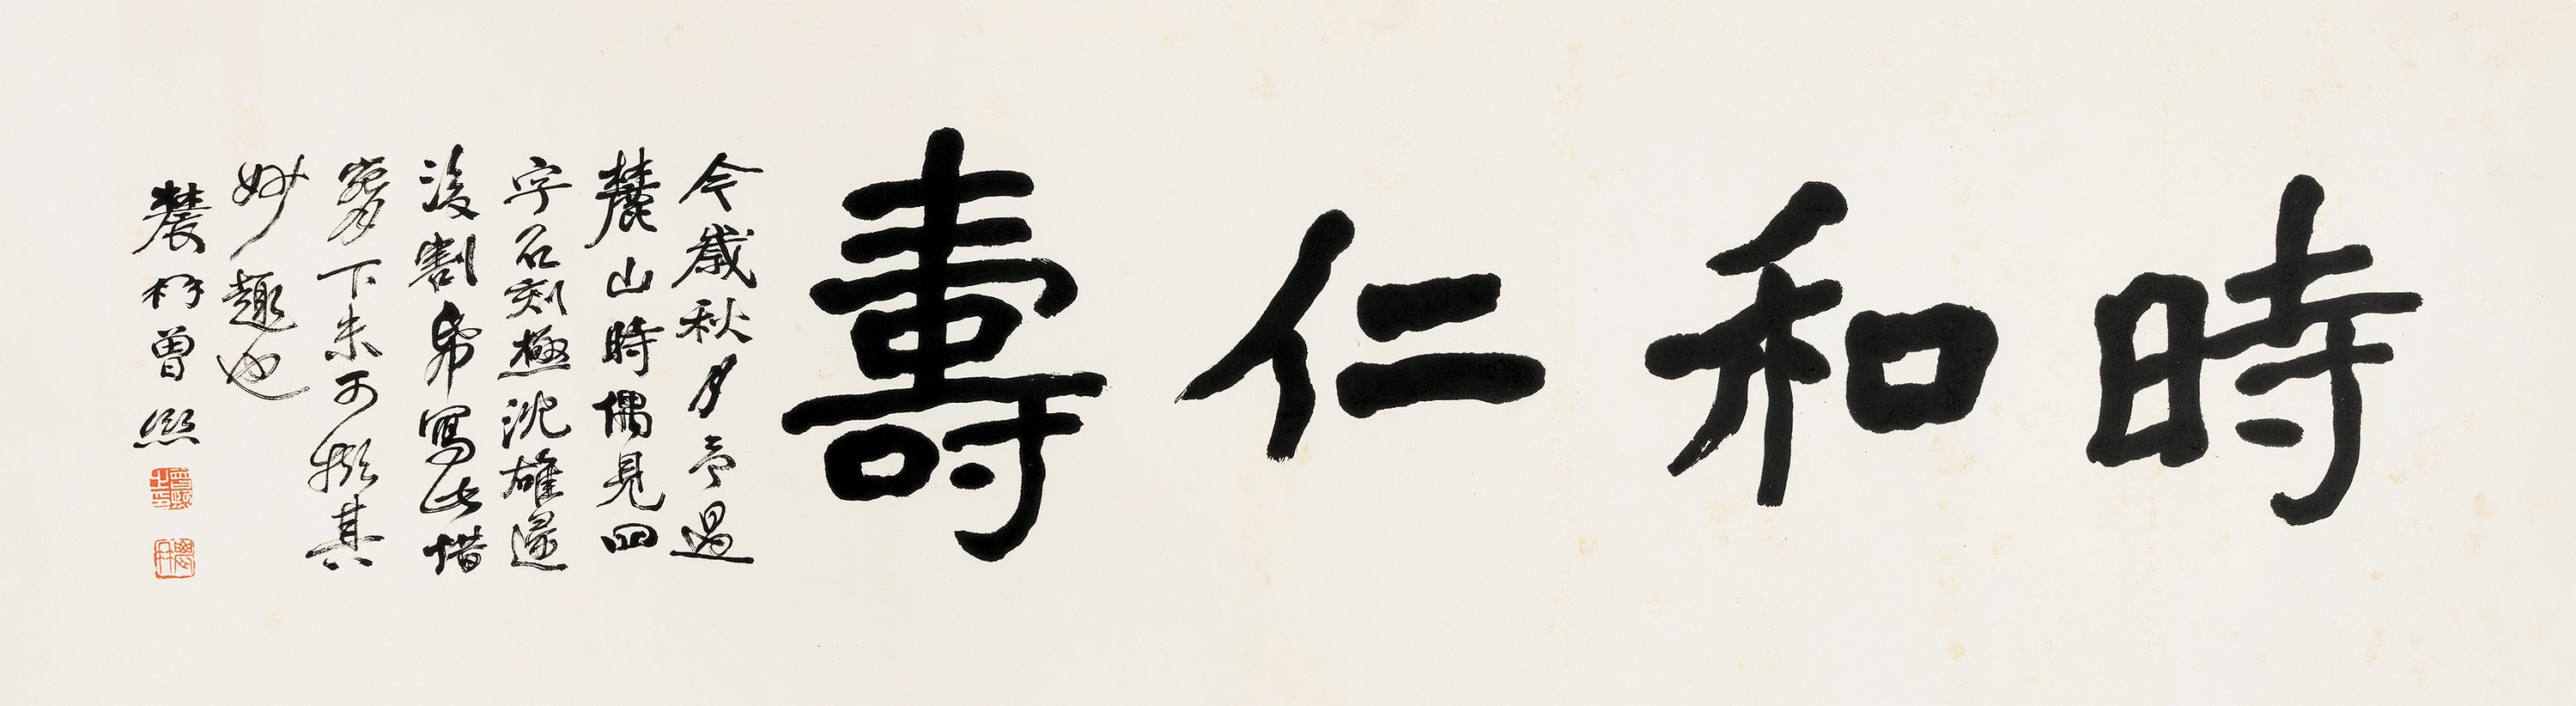 時和仁壽
今歲秋月予過
麓山時偶見四
字石刻極沈雄遂
後割希寫此惜
腕下未可擬其
妙趣也
農髯曾熙